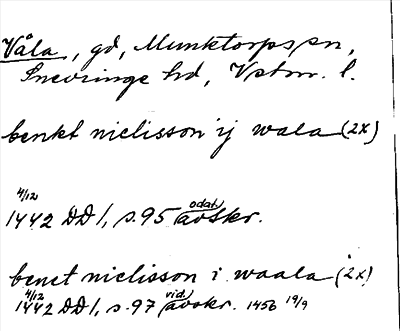 Våla, gd, Munktorps sn,
Snevringe hd, Vstm. l.
benkt nielisson ij wala (2x)
4/12 odat.
1442 DD 1, s. 95 avskr.
benct nielisson i waala (2x)
4/12 vid.
1442 DD 1, s. 97 avskr. 1456 19/9